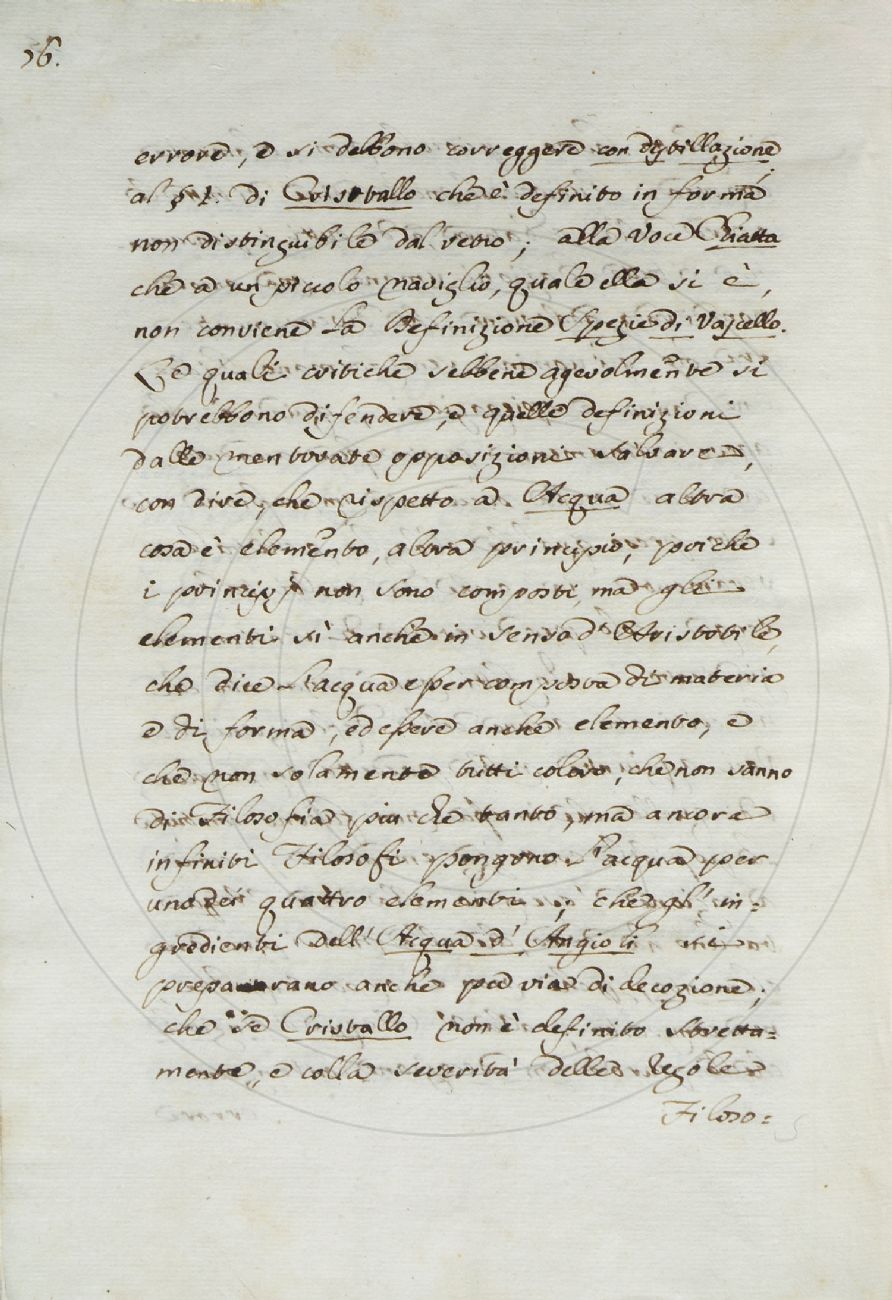 56.
errore, e si debbono correggere con distillazione
al § 1. di Cristallo che è definito in forma
non distinguibile dal vetro; alla voce Chiatta
che a un piccolo naviglio, quale ella si è,
non conviene la Definizione Spezie di Vascello.
Le quali critiche sebbene agevolmente si
potrebbono difendere, e quelle definizioni
dalle mentovate opposizioni salvare,
con dire, che rispetto a Acqua altra
cosa è elemento, altra principio, poiche
i principj non sono composti, ma gli
elementi sì anche in senso d'Aristotile,
che dice l'acqua esser composta di materia
e di forma, ed essere anche elemento, e
che non solamente tutti coloro, che non sanno
di Filosofia piu che tanto, ma ancora
infiniti Filosofi pongono l'acqua per
uno dei quattro elementi; che gl'in=
gredienti dell'Acqua d'Angioli si
preparano anche per via di decozione;
che se Cristallo non è definito stretta=
mente, e colla severità delle regole
Filoso=